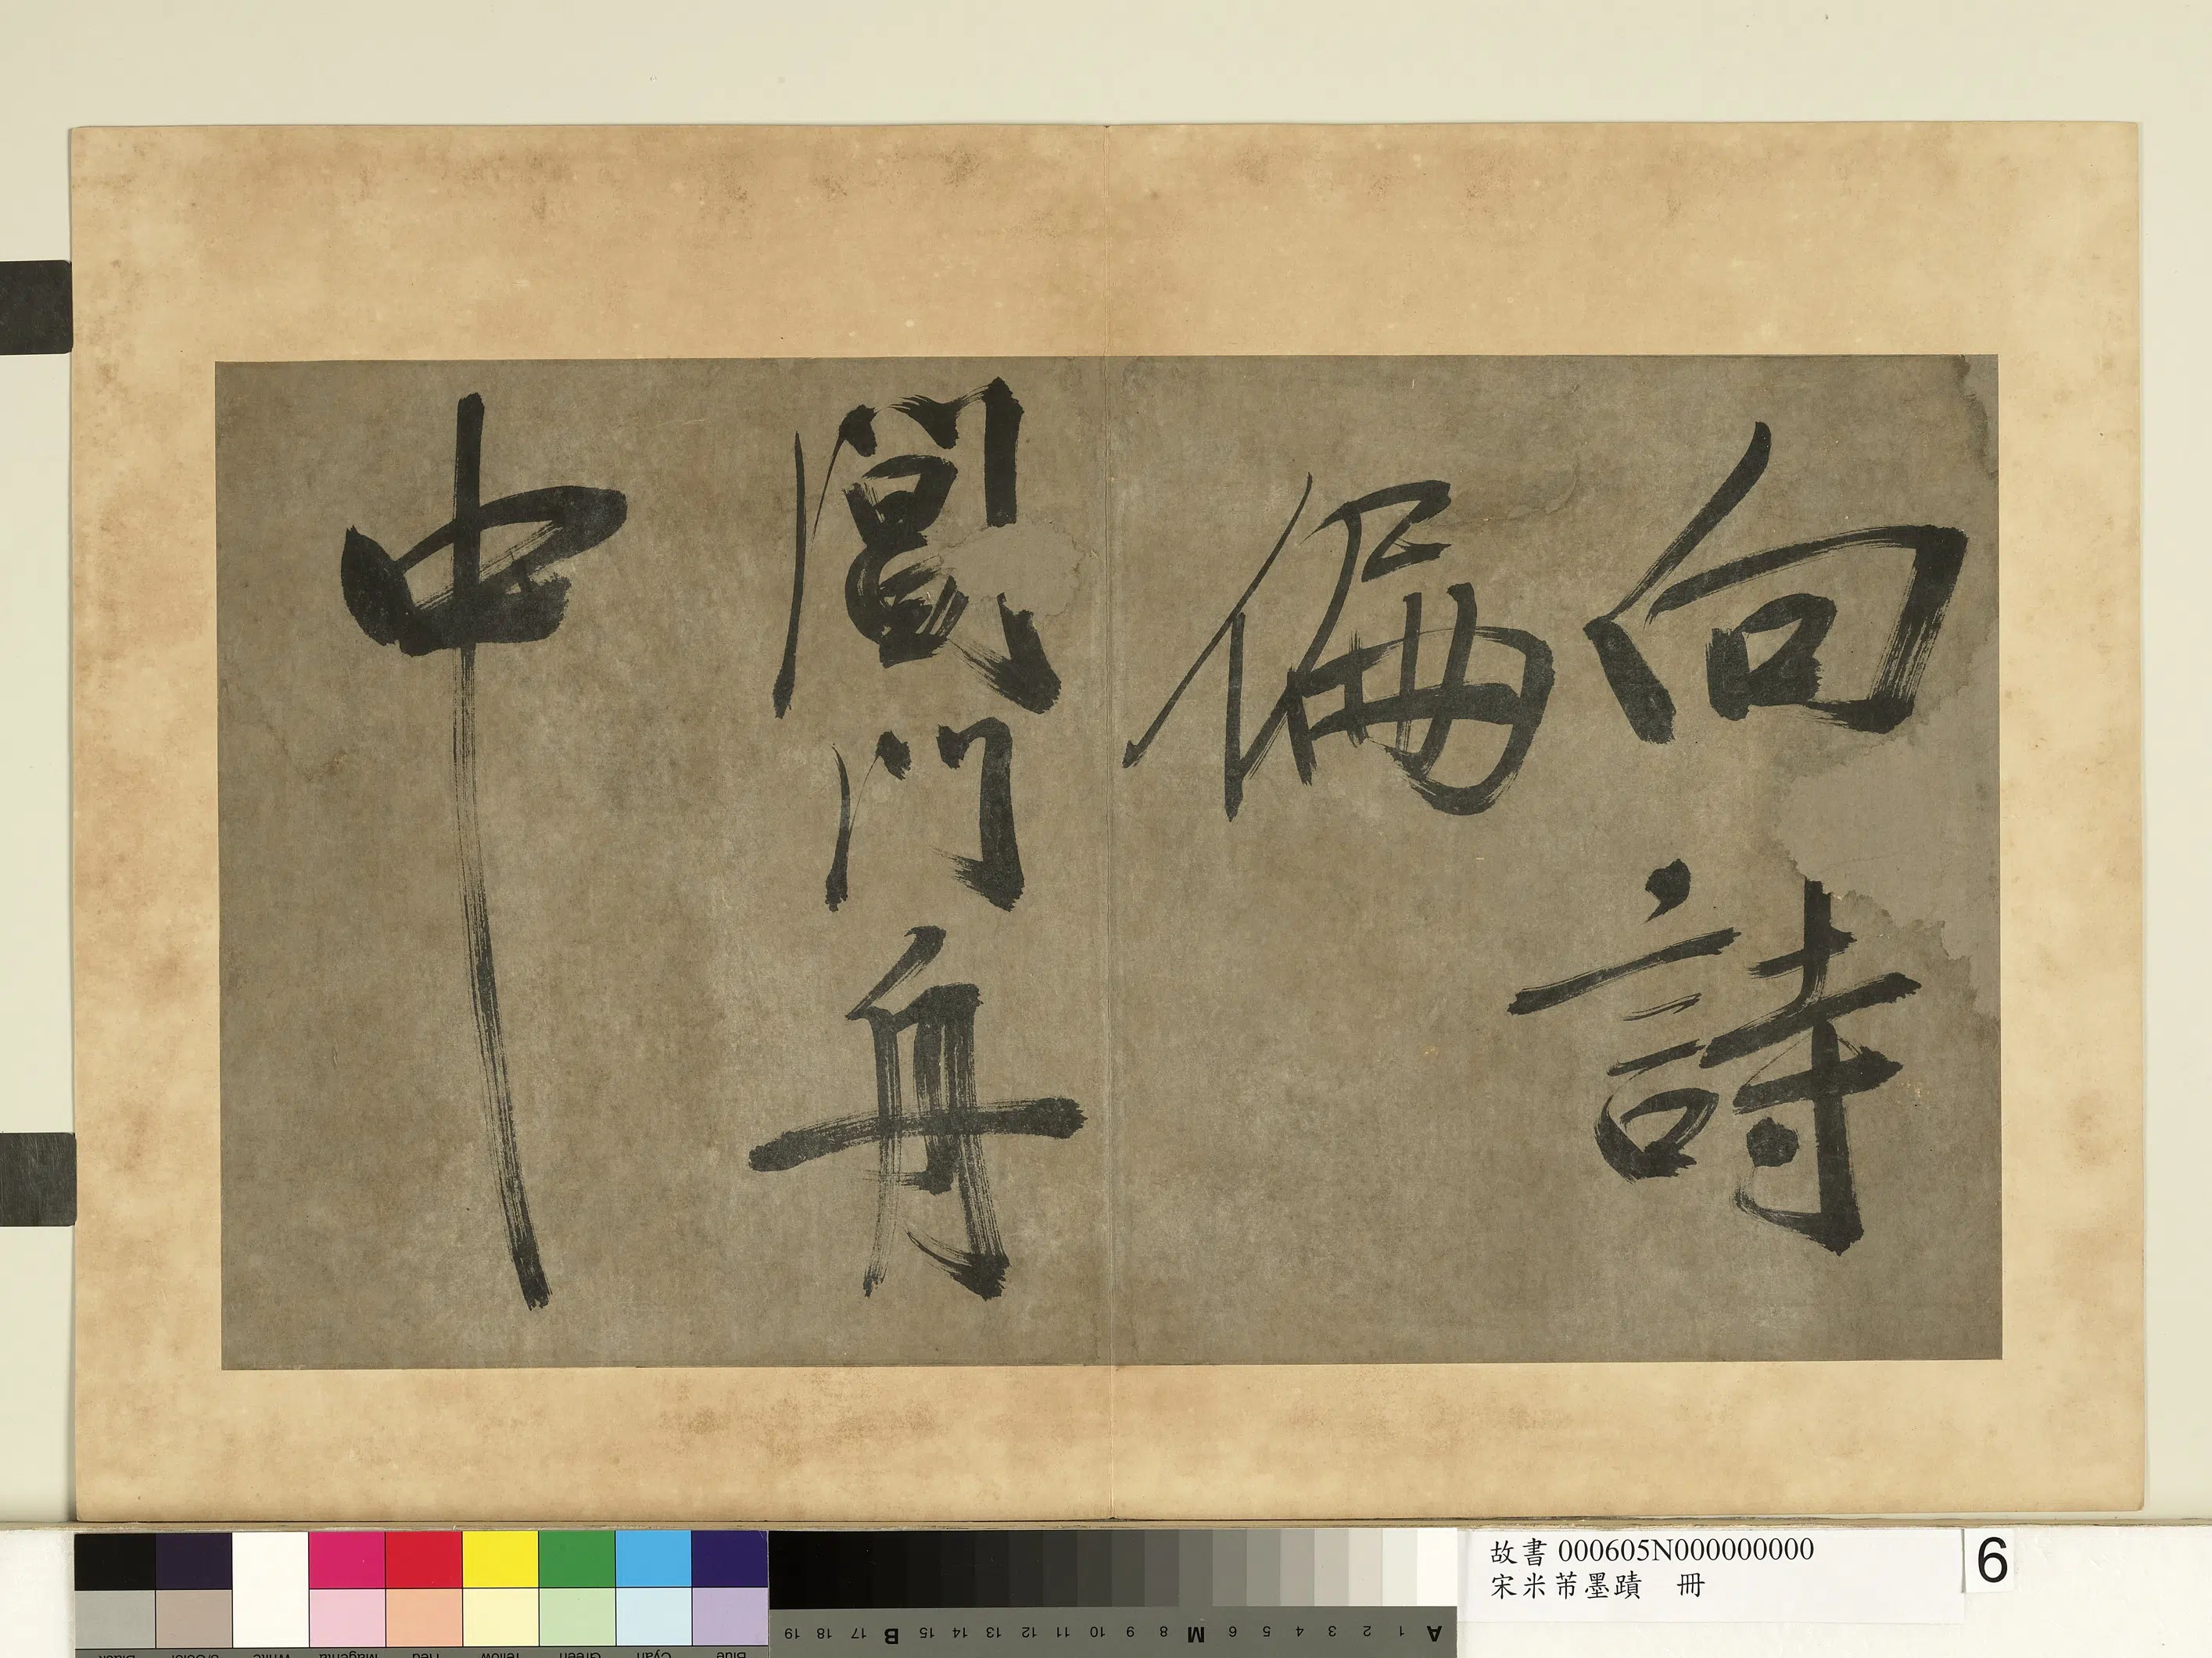 向詩
偏
閶門舟
中
故書 000605N000000000
宋米芾墨蹟 冊
6
A 1 2 3 4 5 6 M 8 9 10 11 12 13 14 15 B 17 18 19
Blue Cyan Green Yellow Red Magenta White 3/Color Black